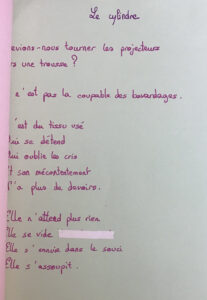 Le cylindre
evions-nous tourner les projecteurs
rs une trousse ?
e n'est pas la coupable des bavardages.
'est du tissu usé
ui se détend
ui oublie les cris
t son mécontentement
'a plus de devoirs.
Elle n'attend plus rien.
lle se vide
Elle s'ennuie dans le souci
Elle s'assoupit.